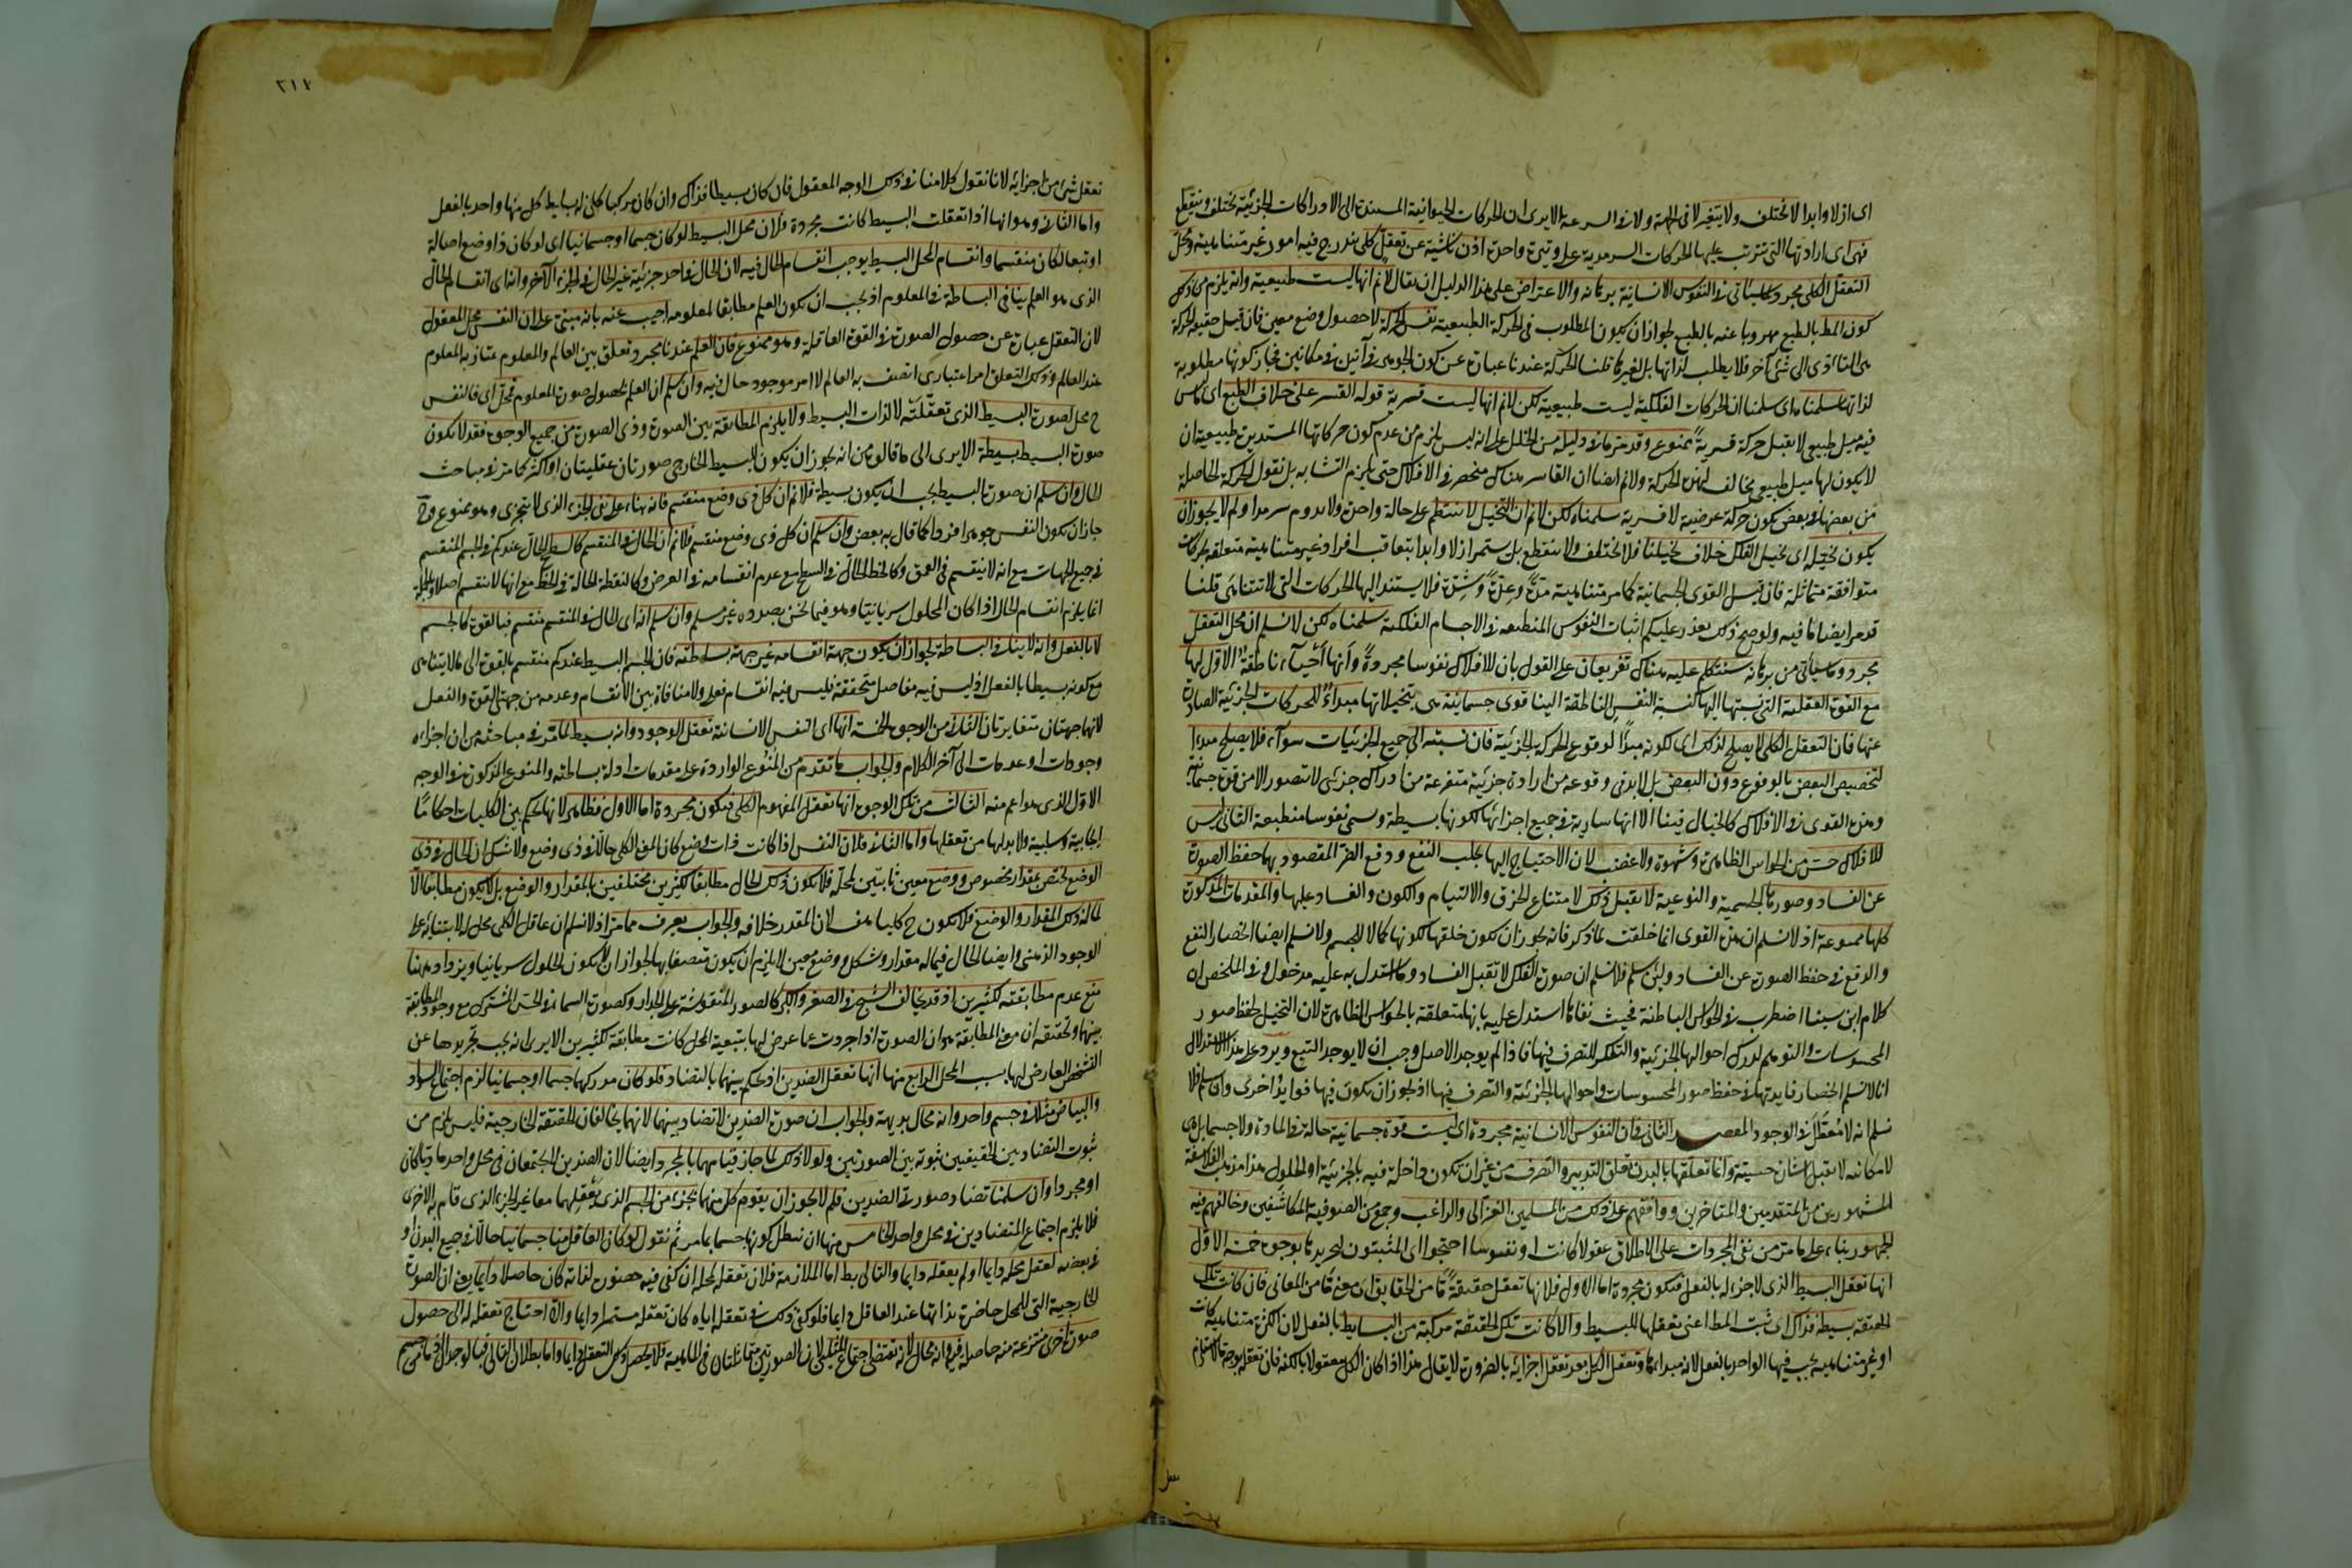 اى ازلا وابدا لا تختلف ولا يتغير لا فى الجهة ولا فى السرعة الا يرى ان الحركات الحيوانية المستندة الى الادراكات الجزئية تختلف وينقطع
فهى اى ارادتها التى تترتب عليها الحركات السرمدية على وتيرة واحدة اذن ناشية عن تعقل كلى يندرج فيه امور غير متناهية ومحل
التعقل الكلى مجرد كما سيأتى فى النفوس الانسانية برهانه والاعتراض على هذا الدليل ان يقال لا نم انها ليست طبيعية وانه يلزم من ذلك
كون المط بالطبع مهروبا عنه بالطبع لجواز ان يكون المطلوب فى الحركة الطبيعية نفس الحركة لا حصول وضع معين فان قيل حقيقة الحركة
هى التأدى الى شئ آخر فلا يطلب لذاتها بل لغيرها قلنا الحركة عندنا عبارة عن كون الجوهر فى آنين فى مكانين فجاز كونها مطلوبة
لذاتها سلمناه اى سلمنا ان الحركات الفلكية ليست طبيعية لكن لا نم انها ليست قسرية قوله القسر على خلاف الطبع اى ما ليس
فيه ميل طبيعى لا يقبل حركة قسرية ممنوع وقد مر ما فى دليله من الخلل على انه ليس يلزم من عدم كون حركاتها المستديرة طبيعية ان
لا يكون لها ميل طبيعى مخالف لهذه الحركة ولا نم ايضا ان القاسر هناك منحصر فى الافلاك حتى يلزم التشابه بل نقول الحركة الحاصلة
من بعضها فى بعض يكون حركة عرضية لا قسرية سلمناه لكن لا نم ان التخيل لا ينتظم على حالة واحدة ولا يدوم سرمدا ولم لا يجوز ان
يكون تخيله اى تخيل الفلك خلاف تخيلنا فلا يختلف ولا ينقطع بل يستمر ازلا وابدا بتعاقب افراد غير متناهية متعلقة بحركات
متوافقة متماثلة فان قيل القوى الجسمانية كما مر متناهية مدة وعدة وشدة فلا يستند اليها الحركات التى لا تتناهى قلنا
قد مر ايضا ما فيه ولو صح ذلك تعذر عليكم اثبات النفوس المنطبعة فى الاجسام الفلكية سلمناه لكن لا نسلم ان محل التعقل
مجرد وما سيأتى من برهانه سنتكلم عليه هناك تفريعان على القول بان للافلاك نفوسا مجردة وانها احياء ناطقة الاول لها
مع القوة العقلية التى نسبتها اليها كنسبة النفس الناطقة الينا قوى جسمانية هى بتخيلاتها مبداء للحركات الجزئية الصادرة
عنها فان التعقل الكلى لا يصلح لذلك اى لكونه مبدأ لوقوع الحركة الجزئية فان نسبته الى جميع الجزئيات سواء فلا يصلح مبدءا
لتخصيص البعض بالوقوع دون البعض بل لا بد فى وقوعه من ارادة جزئية متفرعة من ادراك جزئى لا تتصور الا من قوة جسمانية
وهذه القوى فى الافلاك كالخيال فينا الا انها سارية فى جميع اجزائها لكونها بسيطة وتسمى نفوسا منطبعة الثانى ليس
للافلاك حس من الحواس الظاهرة وشهوة ولا غضب لان الاحتياج اليها لجلب النفع ودفع الضر المقصود بهما حفظ الصورة
عن الفساد وصورها الجسمية والنوعية لا يقبل ذلك لامتناع الخرق والالتيام والكون والفساد عليها والمقدمات المذكورة
كلها ممنوعة اذ لا نسلم ان هذه القوى انما خلقت لما ذكر فانه يجوز ان يكون خلقها لكونها كمالا للجسم ولا نسلم ايضا انحصار النفع
والدفع فى حفظ الصورة عن الفساد ولئن سلم فلا نسلم ان صورة الفلك لا تقبل الفساد وما استدل به عليه مدخول وفى الملخص ان
كلام ابن سينا اضطرب فى الحواس الباطنة فحيث نفاها استدل عليه بانها متعلقة بالحواس الظاهرة لان التخيل لحفظ صور
المحسوسات والتوهم لدرك احوالها الجزئية والتفكر للتصرف فيها فاذا لم يوجد الاصل وجب ان لا يوجد التبع ويرد على هذا الاستدلال
انا لا نسلم انحصار فايدتها فى حفظ صور المحسوسات واحوالها الجزئية والتصرف فيها اذ يجوز ان يكون فيها فوايد اخرى وان سلم فلا
نسلم انه لا معطل فى الوجود المقصد الثانى فى ان النفوس الانسانية مجردة اى ليست قوة جسمانية حالة فى المادة ولا جسما بل هى
لامكانية لا تقبل اشارة حسية وانما تعلقها بالبدن تعلق التدبير والتصرف من غير ان يكون داخلة فيه بالجزئية او الحلول هذا مذهب الفلاسفة
المشهورين من المتقدمين والمتاخرين ووافقهم على ذلك من المسلمين الغزالى والراغب وجمع من الصوفية المكاشفين وخالفهم فيه
الجمهور بناء على ما مر من نفى المجردات على الاطلاق عقولا كانت او نفوسا احتجوا اى المثبتون لتجريدها بوجوه خمسة الاول
انها تعقل البسيط الذى لا جزء له بالفعل فتكون مجردة اما الاول فلانها تعقل حقيقة ما من الحقايق اى معنى ما من المعانى فان كانت تلك
الحقيقة بسيطة فذاك اى ثبت المط اعنى تعقلها للبسيط والا كانت تلك الحقيقة مركبة من البسايط بالفعل لان الكثرة متناهية كانت
او غير متناهية يجب فيها الواحد بالفعل لانه مبداءها وتعقل الكل بعد تعقل اجزائه بالضرورة لا يقال هذا اذا كان الكل معقولا بالكنه فان تعقله بوجه ما لا يستلزم
٢١٤
تعقل شئ من اجزائه لانا نقول كلامنا فى ذلك الوجه المعقول فان كان بسيطا فذاك وان كان مركبا كان له بسايط كل منها واحد بالفعل
واما الثانى وهو انها اذا تعقلت البسيط كانت مجردة فلان محل البسيط لو كان جسما او جسمانيا اى لو كان ذا وضع اصالة
او تبعا لكان منقسما وانقسام المحل البسيط يوجب انقسام الحال فيه لان الحال فى احد جزئيه غير الحال فى الجزء الآخر وانه اى انقسام الحال
الذى هو العلم ينافى البساطة فى المعلوم اذ يجب ان يكون العلم مطابقا لمعلومه اجيب عنه بانه مبنى على ان النفس محل المعقول
لان التعقل عبارة عن حصول الصورة فى القوة العاقلة وهو ممنوع فان العلم عندنا مجرد تعلق بين العالم والمعلوم يمتاز به المعلوم
عند العالم وذلك التعلق امر اعتبارى اتصف به العالم لا امر موجود حال فيه وان سلم ان العلم بحصول صورة المعلوم فمحل اى فالنفس
ح محل لصورة البسيط الذى تعقلته لا لذات البسيط ولا يلزم المطابقة بين الصورة وذى الصورة من جميع الوجوه فقد لا يكون
صورة البسيط بسيطة الا يرى الى ما قالوه من انه يجوز ان يكون للبسيط الخارجى صورتان عقليتان او اكثر كما مر فى مباحث
الحال وان سلم ان صورة البسيط يجب ان يكون بسيطة فلا نم ان كل ذى وضع منقسم فانه بناء على نفى الجزء الذى لا يتجزى وهو ممنوع وح
جاز ان يكون النفس جوهرا فردا كما قال به بعض وان سلم ان كل ذى وضع منقسم فلا نم ان الحال فى المنقسم كالسطح الحال عندكم فى الجسم المنقسم
فى جميع الجهات مع انه لا ينقسم فى العمق وكالخط الحال فى السطح مع عدم انقسامه فى العرض وكالنقطة الحالة فى الخط مع انها لا تنقسم اصلا وبالجملة
انما يلزم انقسام الحال اذا كان الحلول سريانيا وهو فيما نحن بصدده غير مسلم وان سلم انه اى الحال فى المنقسم منقسم فبالقوة كالجسم
لا بالفعل وانه لا ينافى البساطة لجواز ان يكون جهة انقسامه غير جهة بساطته فان الجسم البسيط عندكم منقسم بالقوة الى ما لا يتناهى
مع كونه بسيطا بالفعل اذ ليس فيه مفاصل متحققة فليس فيه انقسام فعلى ولا منافاة بين الانقسام وعدمه من جهتى القوة والفعل
لانهما جهتان متغايرتان الثانى من الوجوه الخمسة انها اى النفس الانسانية تعقل الوجود وانه بسيط لما مر فى مباحثه من ان اجزاءه
وجودات او عدمات الى آخر الكلام والجواب ما تقدم من المنوع الواردة على مقدمات ادلة بساطته والمنوع المذكورة فى الوجه
الاول الذى هو اعم منه الثالث من تلك الوجوه انها تعقل المفهوم الكلى فتكون مجردة اما الاول فظاهر لانها تحكم بين الكليات احكاما
ايجابية وسلبية ولا بد لها من تعقلها واما الثانى فلان النفس اذا كانت ذات وضع كان المعنى الكلى حالا فى ذى وضع ولا شك ان الحال فى ذى
الوضع يختص بمقدار مخصوص ووضع معين ثابتين لمحله فلا يكون ذلك الحال مطابقا لكثيرين مختلفين بالمقدار والوضع بل لا يكون مطابقا الا
لما له ذلك المقدار والوضع فلا يكون ح كليا هف لان المقدر خلافه والجواب يعرف مما مر اذ لا نسلم ان عاقل الكلى محل له لابتنائه على
الوجود الذهنى وايضا الحال فيما له مقدار وشكل ووضع معين لا يلزم ان يكون متصفا بها لجواز ان لا يكون الحلول سريانيا ويزاد ههنا
منع عدم مطابقته لكثيرين اذ قد يخالف الشبح فى الصغر والكبر كالصور المنقوشة على الجدار وكصورة السماء فى الحس المشترك مع وجود المطابقة
بينهما وتحقيقه ان معنى المطابقة هو ان الصورة اذا جردت عما عرض لها بتبعية المحل كانت مطابقة لكثيرين الا يرى انه يجب تجريدها عن
التشخص العارض لها بسبب المحل الرابع منها انها تعقل الضدين اذ تحكم بينهما بالتضاد فلو كان مدركهما جسما او جسمانيا لزم اجتماع السواد
والبياض مثلا فى جسم واحد وانه محال بديهة والجواب ان صورة الضدين لا تضاد بينهما لانهما يخالفان الحقيقة الخارجية فليس يلزم من
ثبوت التضاد بين الحقيقتين ثبوته بين الصورتين ولولا ذلك لما جاز قيامهما بالمجرد ايضا لان الضدين لا يجتمعان فى محل واحد ماديا كان
او مجردا وان سلمنا تضاد صورتى الضدين فلم لا يجوز ان يقوم كل منهما بجزء من الجسم الذى يعقلهما معا غير الجزء الذى قام به الاخرى
فلا يلزم اجتماع المتضادين فى محل واحد الخامس منها ان نبطل كونها جسما بما مر ثم نقول لو كان العاقل منا جسمانيا حالا فى جميع البدن او
فى بعضه لعقل محله دايما او لم يعقله دايما والتالى بط اما الملازمة فلان تعقله لمحله ان كفى فيه حضوره لذاته كان حاصلا دايما يعنى ان الصورة
الخارجية التى للمحل حاضرة بذاتها عند العاقل دايما فلو كفى ذلك فى تعقله اياه كان تعقله مستمرا دايما والا احتاج تعقله له الى حصول
صورة اخرى منتزعة منه حاصلة فيه وانه محال لانه يقتضى اجتماع المثلين لان الصورتين متماثلتان فى الماهية فلا يحصل ذلك التعقل دايما واما بطلان التالى فبالوجدان اذ ما من جسم